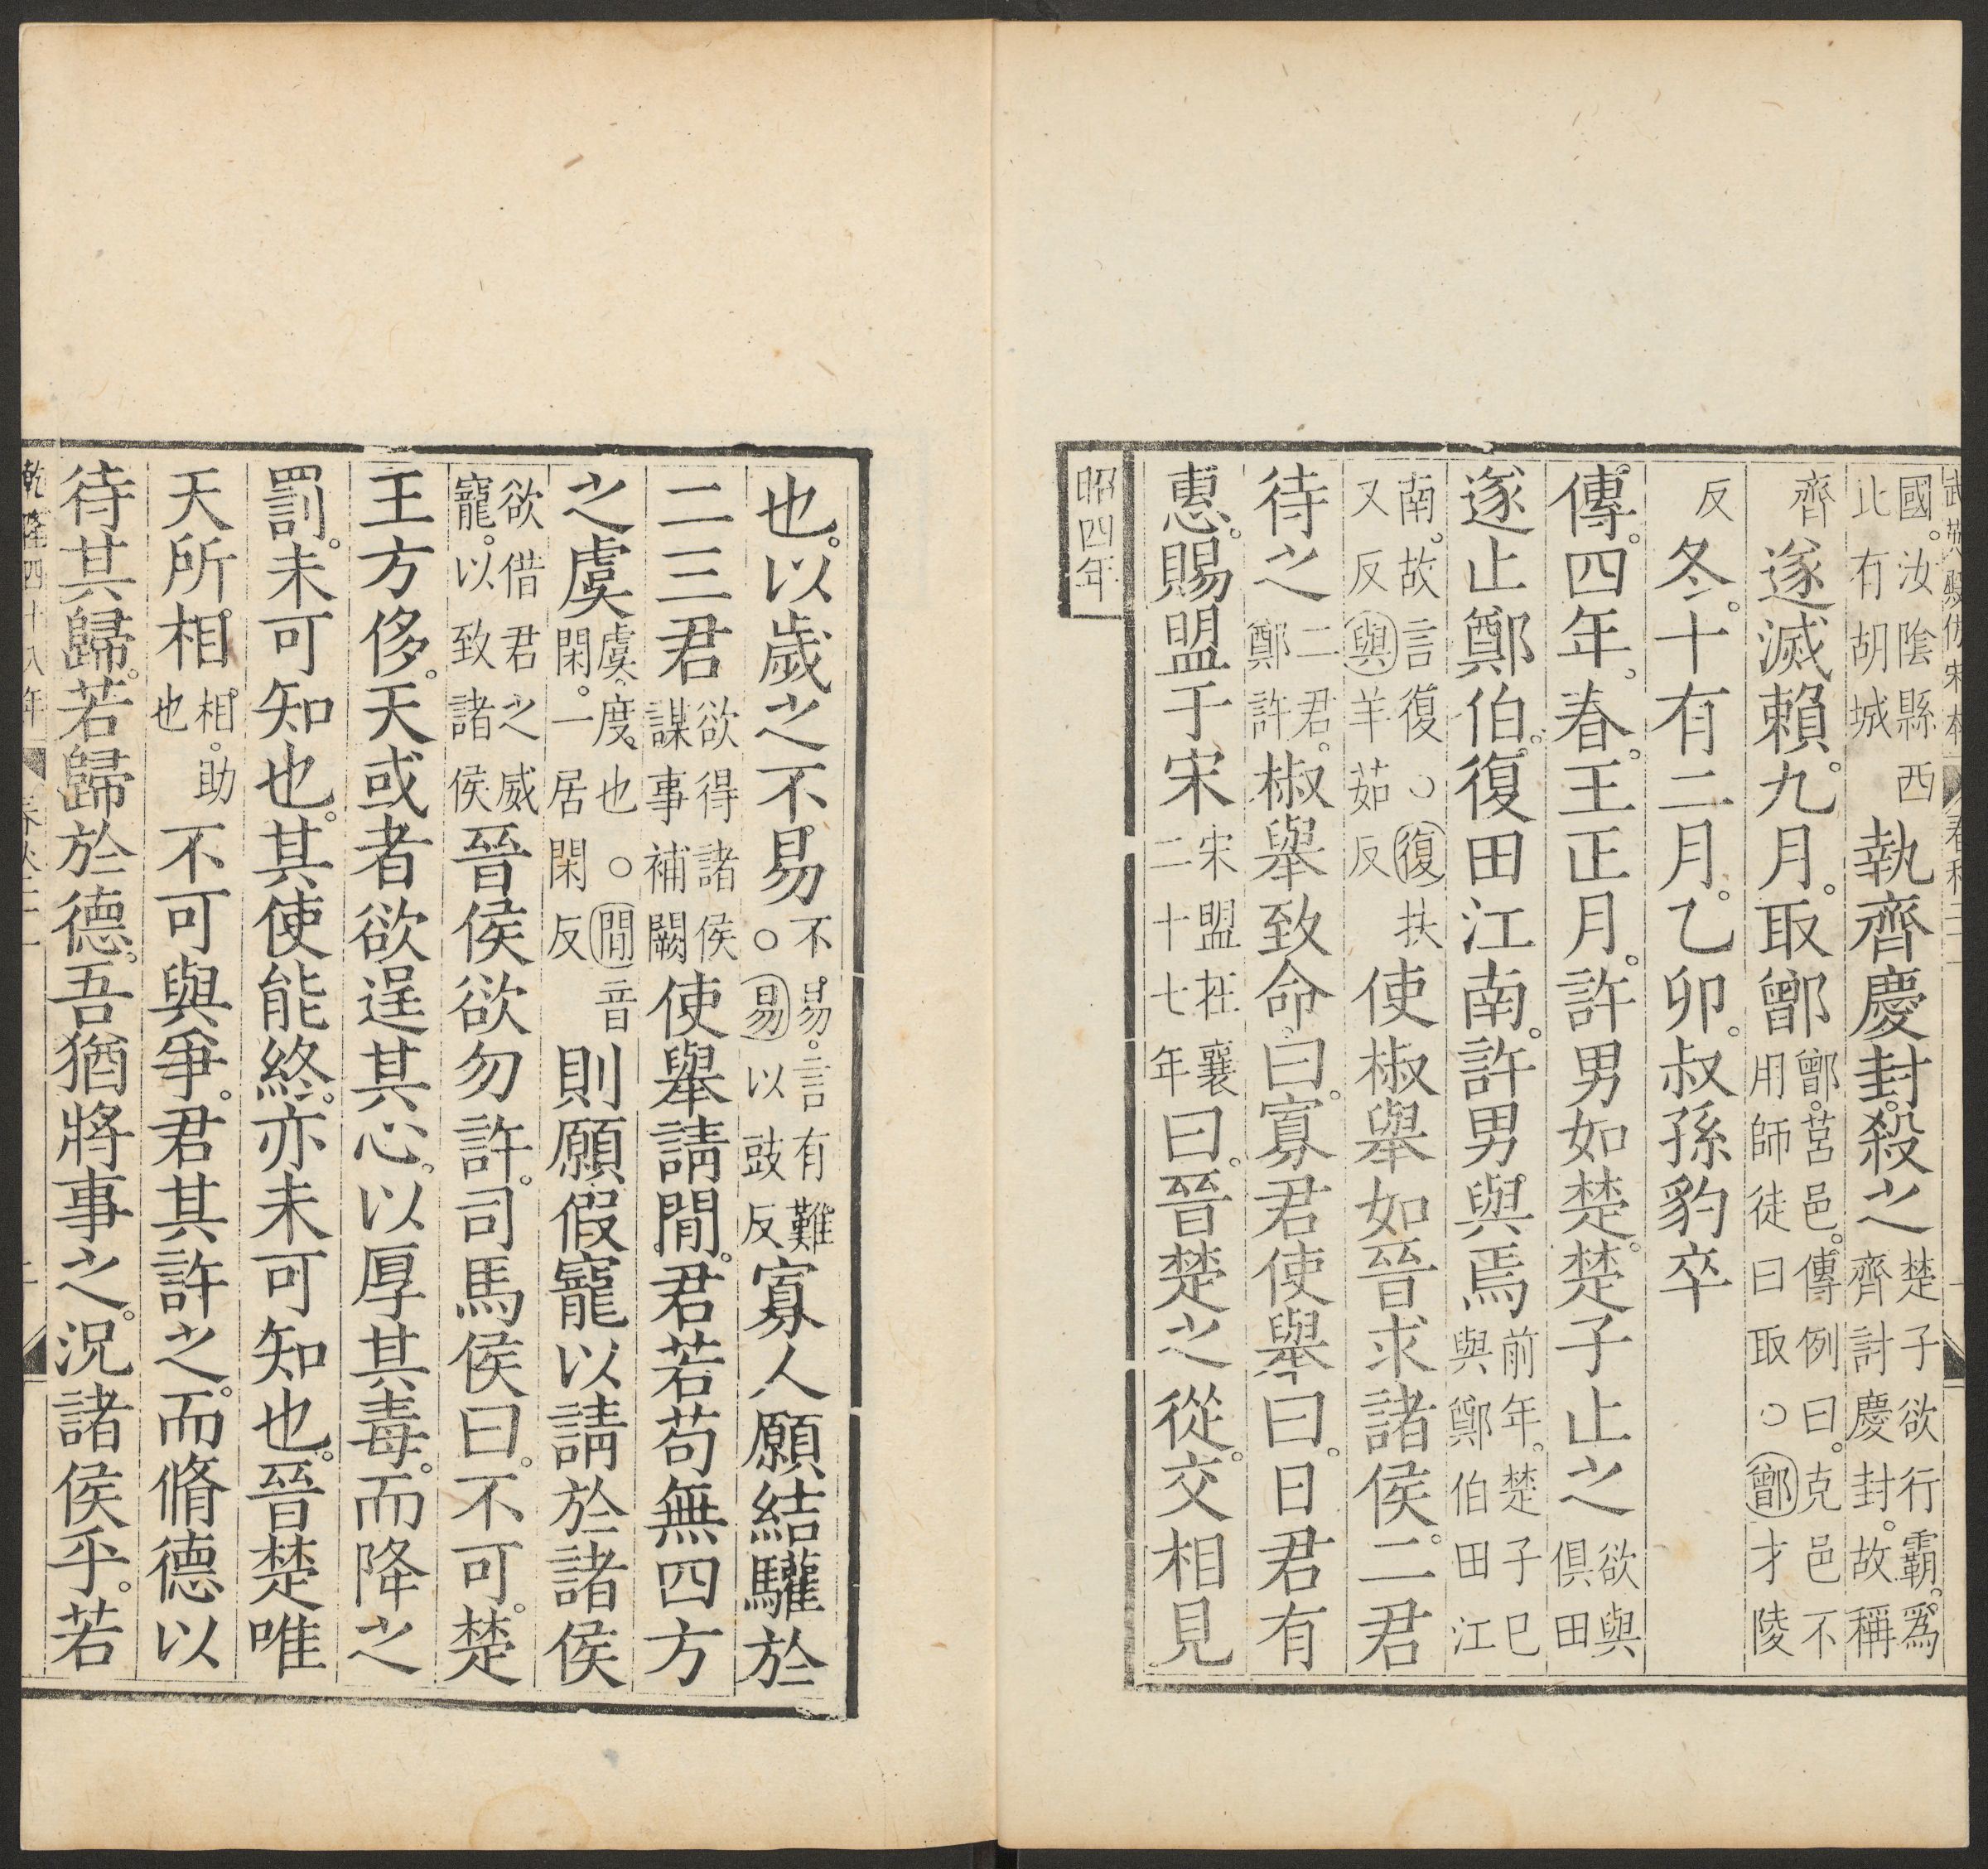 國。汝陰縣西北有胡城執齊慶封。殺之楚子欲行霸。爲齊討慶封。故稱
齊遂滅賴。九月。取鄫鄫。莒邑。傳例曰。克邑不用師徒曰取○鄫才陵
反冬。十有二月。乙卯。叔孫豹卒
傳。四年。春。王正月。許男如楚。楚子止之欲與俱田
遂止鄭伯。復田江南。許男與焉前年。楚子巳與鄭伯田江
南。故言復○復扶又反與羊茹反使椒舉如晉求諸侯。二君
待之二君。鄭許椒舉致命曰。寡君使舉曰。日君有
惠。賜盟于宋宋盟在襄二十七年曰。晉楚之從。交相見
昭四年
也。以歲之不易不易。言有難○易以豉反寡人願結驩於
二三君欲得諸侯謀事補闕使舉請閒。君若苟無四方
之虞虞。度也○閒音閑。一居閑反則願假寵以請於諸侯
欲借君之威寵。以致諸侯晉侯欲勿許。司馬侯曰。不可。楚
王方侈。天或者欲逞其心。以厚其毒。而降之
罰。未可知也。其使能終。亦未可知也。晉楚唯
天所相相。助也不可與爭。君其許之。而脩德以
待其歸。若歸於德。吾猶將事之。況諸侯乎。若
乾隆四十八年